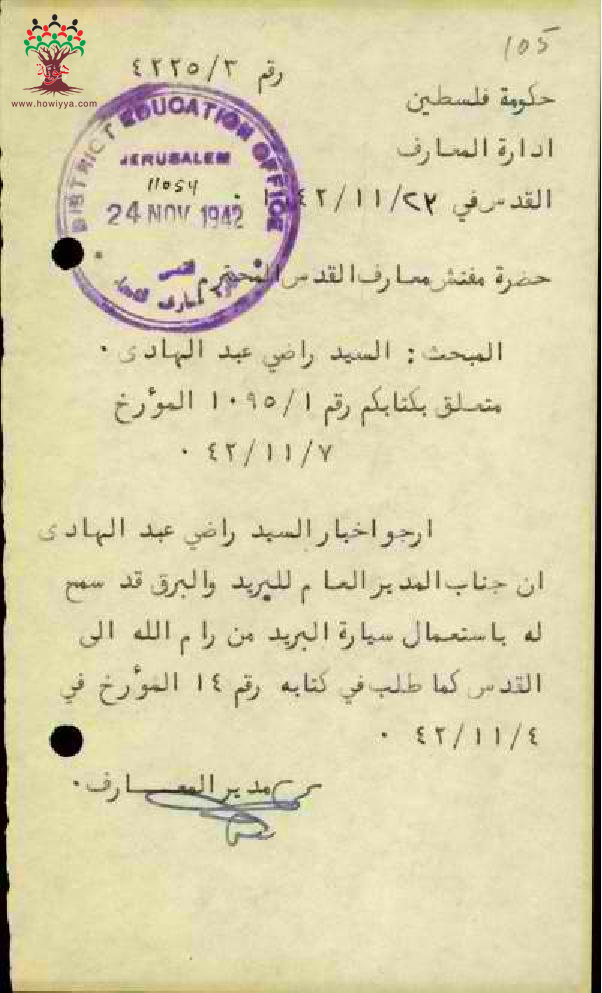 105
رقم ٤٢٢٥/٣
www.howiyya.com
حكومة فلسطين
ادارة المعارف
القدس في ٤٢/١١/٢٣
DISTRICT EDUCATION OFFICE
JERUSALEM
11054
24 NOV 1942
القدس
حضرة مفتش معارف القدس المحترم
المبحث : السيد راضي عبد الهادى ٠
متعلق بكتابكم رقم ١٠٩٥/١ المؤرخ
٤٢/١١/٧ ٠
ارجو اخبار السيد راضي عبد الهادى
ان جناب المدير العام للبريد والبرق قد سمح
له باستعمال سيارة البريد من رام الله الى
القدس كما طلب في كتابه رقم ١٤ المؤرخ في
٤٢/١١/٤ ٠
مدير المعـــارف ٠